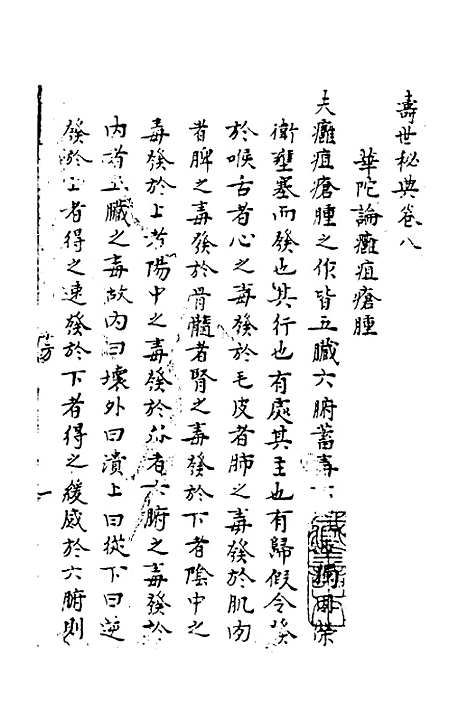 壽世秘典卷八
華陀論癰疽瘡腫
夫癰疽瘡腫之作皆五臟六腑蓄毒不獨因榮
衛壅塞而發也其行也有處其主也有歸假令發
於喉舌者心之毒發於毛皮者肺之毒發於肌肉
者脾之毒發於骨髓者腎之毒發於下者陰中之
毒發於上者陽中之毒發於外者六腑之毒發於
內者五臟之毒故內曰壞外曰潰上曰從下曰逆
發於上者得之速發於下者得之緩感於六腑則